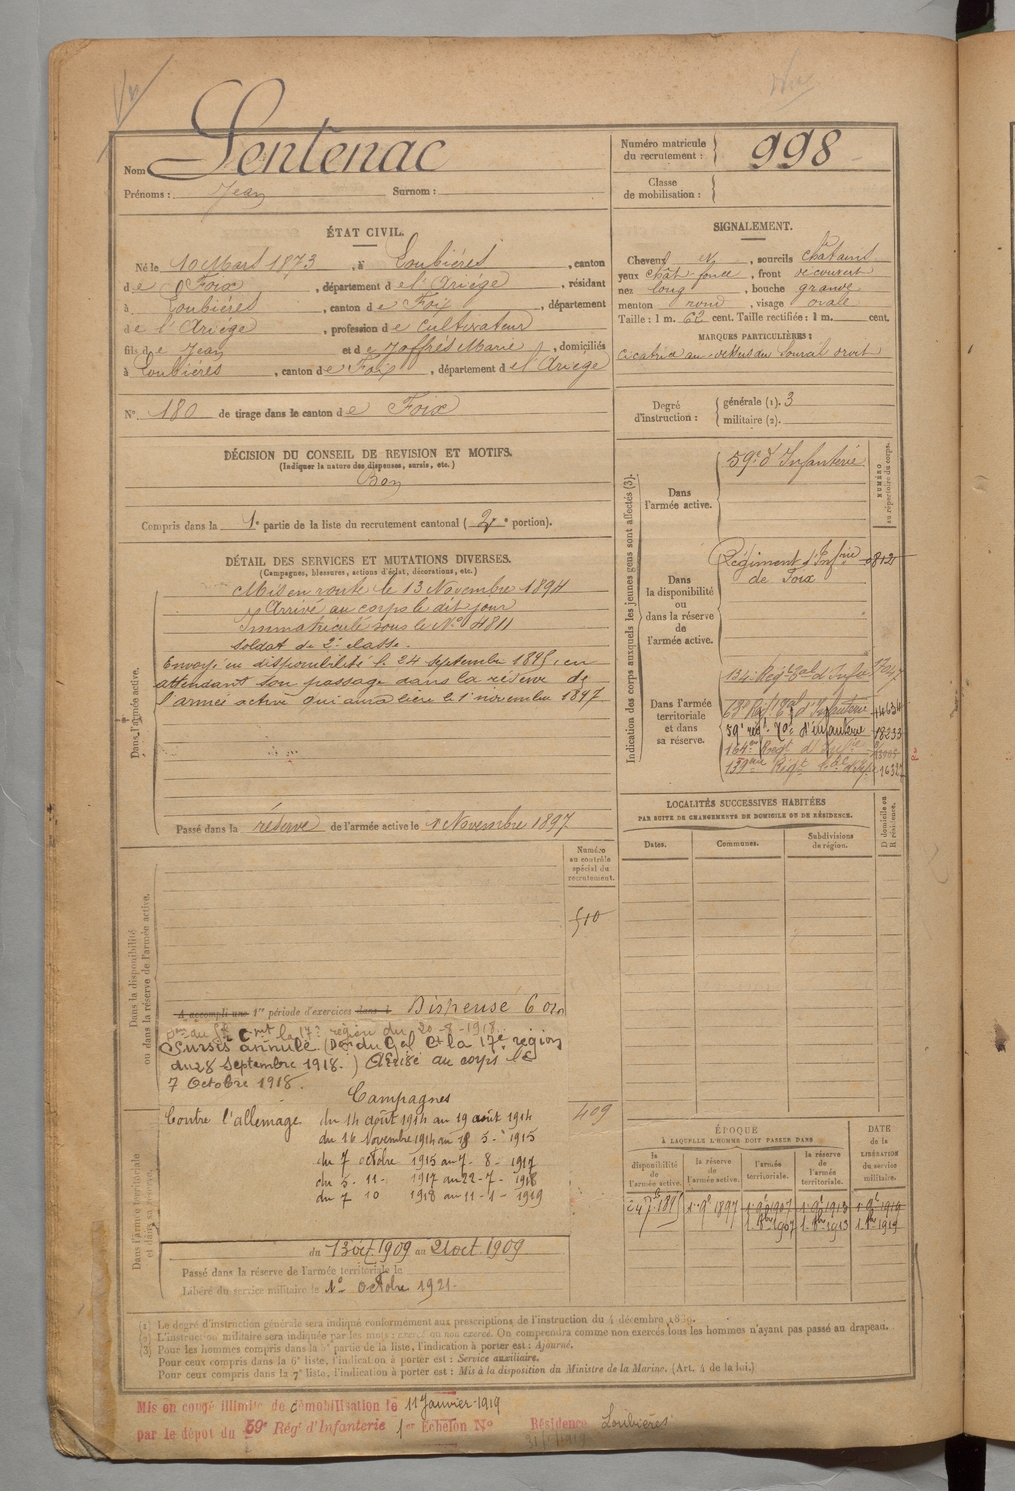 Nom Sentenac
Prénoms : Jean Surnom :
Numéro matricule du recrutement : 998
Classe de mobilisation :
ÉTAT CIVIL.
Né le 10 Mars 1873, à Loubières, canton
de Foix, département de l'Ariège, résidant
à Loubières, canton de Foix, département
de l'Ariège, profession de Cultivateur
fils de Jean et de Joffrés Marie, domiciliés
à Loubières, canton de Foix, département de l'Ariège
N° 180 de tirage dans le canton de Foix
SIGNALEMENT.
Cheveux N, sourcils chatains
yeux chât. foncé, front découvert
nez long, bouche grande
menton rond, visage ovale
Taille : 1 m. 62 cent. Taille rectifiée : 1 m. cent.
MARQUES PARTICULIÈRES :
Cicatrice au-dessus du sourcil droit
Degré d'instruction : générale (1). 3
militaire (2).
DÉCISION DU CONSEIL DE REVISION ET MOTIFS.
(Indiquer la nature des dispenses, sursis, etc.)
Bon
Compris dans la 1e partie de la liste du recrutement cantonal ( 2e portion).
DÉTAIL DES SERVICES ET MUTATIONS DIVERSES.
(Campagnes, blessures, actions d'éclat, décorations, etc.)
Dans l'armée active.
Mis en route le 13 Novembre 1894
Arrivé au corps le dit jour
Immatriculé sous le No 4811
Soldat de 2e classe.
Envoyé en disponibilité le 24 septembre 1895, en
attendant son passage dans la réserve de
l'armée active qui aura lieu le 1er novembre 1897
Passé dans la réserve de l'armée active le 1 Novembre 1897
Indication des corps auxquels les jeunes gens sont affectés (3).
NUMÉRO au répertoire du corps.
Dans l'armée active.
59e d'Infanterie
Dans la disponibilité ou dans la réserve de l'armée active.
Régiment d'Infrie 0812
de Foix
Dans l'armée territoriale et dans sa réserve.
134e Régt Tal d'Infie
59e régt d'infanterie 18233
164e Régt d'Infie
139eme Régt 16327
LOCALITÉS SUCCESSIVES HABITÉES
PAR SUITE DE CHANGEMENTS DE DOMICILE OU DE RÉSIDENCE.
Dates. Communes. Subdivisions de région.
D domicile ou R résidence.
Numéro au contrôle spécial du recrutement.
510
Dans la disponibilité ou dans la réserve de l'armée active.
A accompli une 1re période d'exercices dans l Dispensé 6 oin
Sursis annulé (Don du Gal Ct la 17e région
du 28 Septembre 1918.) Arrivé au corps le
7 Octobre 1918.
Campagnes
409
Dans l'armée territoriale et dans sa réserve.
Contre l'allemagne du 14 août 1914 au 19 août 1914
du 16 Novembre 1914 au 18 5 - 1915
du 7 octobre 1915 au 7 - 8 - 1917
du 5 - 11 - 1917 au 22 - 7 - 1918
du 7 10 1918 au 11 - 1 - 1919
du 13 oct 1909 au 21 oct 1909
Passé dans la réserve de l'armée territoriale le
Libéré du service militaire le 1er octobre 1921.
ÉPOQUE
À LAQUELLE L'HOMME DOIT PASSER DANS
la disponibilité de l'armée active. la réserve de l'armée active. l'armée territoriale. la réserve de l'armée territoriale.
DATE de la LIBÉRATION du service militaire.
24 7bre 1895 1er 9e 1897 1er 9e 1907 1er 9e 1913 1er 9e 1919
1. 8bre 1907 1. 8bre 1913 1. 8bre 1919
(1) Le degré d'instruction générale sera indiqué conformément aux prescriptions de l'instruction du 4 décembre 1889.
(2) L'instruction militaire sera indiquée par les mots : exercé ou non exercé. On comprendra comme non exercés tous les hommes n'ayant pas passé au drapeau.
(3) Pour les hommes compris dans la 5e partie de la liste, l'indication à porter est : Ajourné.
Pour ceux compris dans la 6e liste, l'indication à porter est : Service auxiliaire.
Pour ceux compris dans la 7e liste, l'indication à porter est : Mis à la disposition du Ministre de la Marine. (Art. 4 de la loi.)
Mis en congé illimité de démobilisation le 11 Janvier 1919
par le dépôt du 59e Régt d'Infanterie 1er Echelon No Résidence Loubières